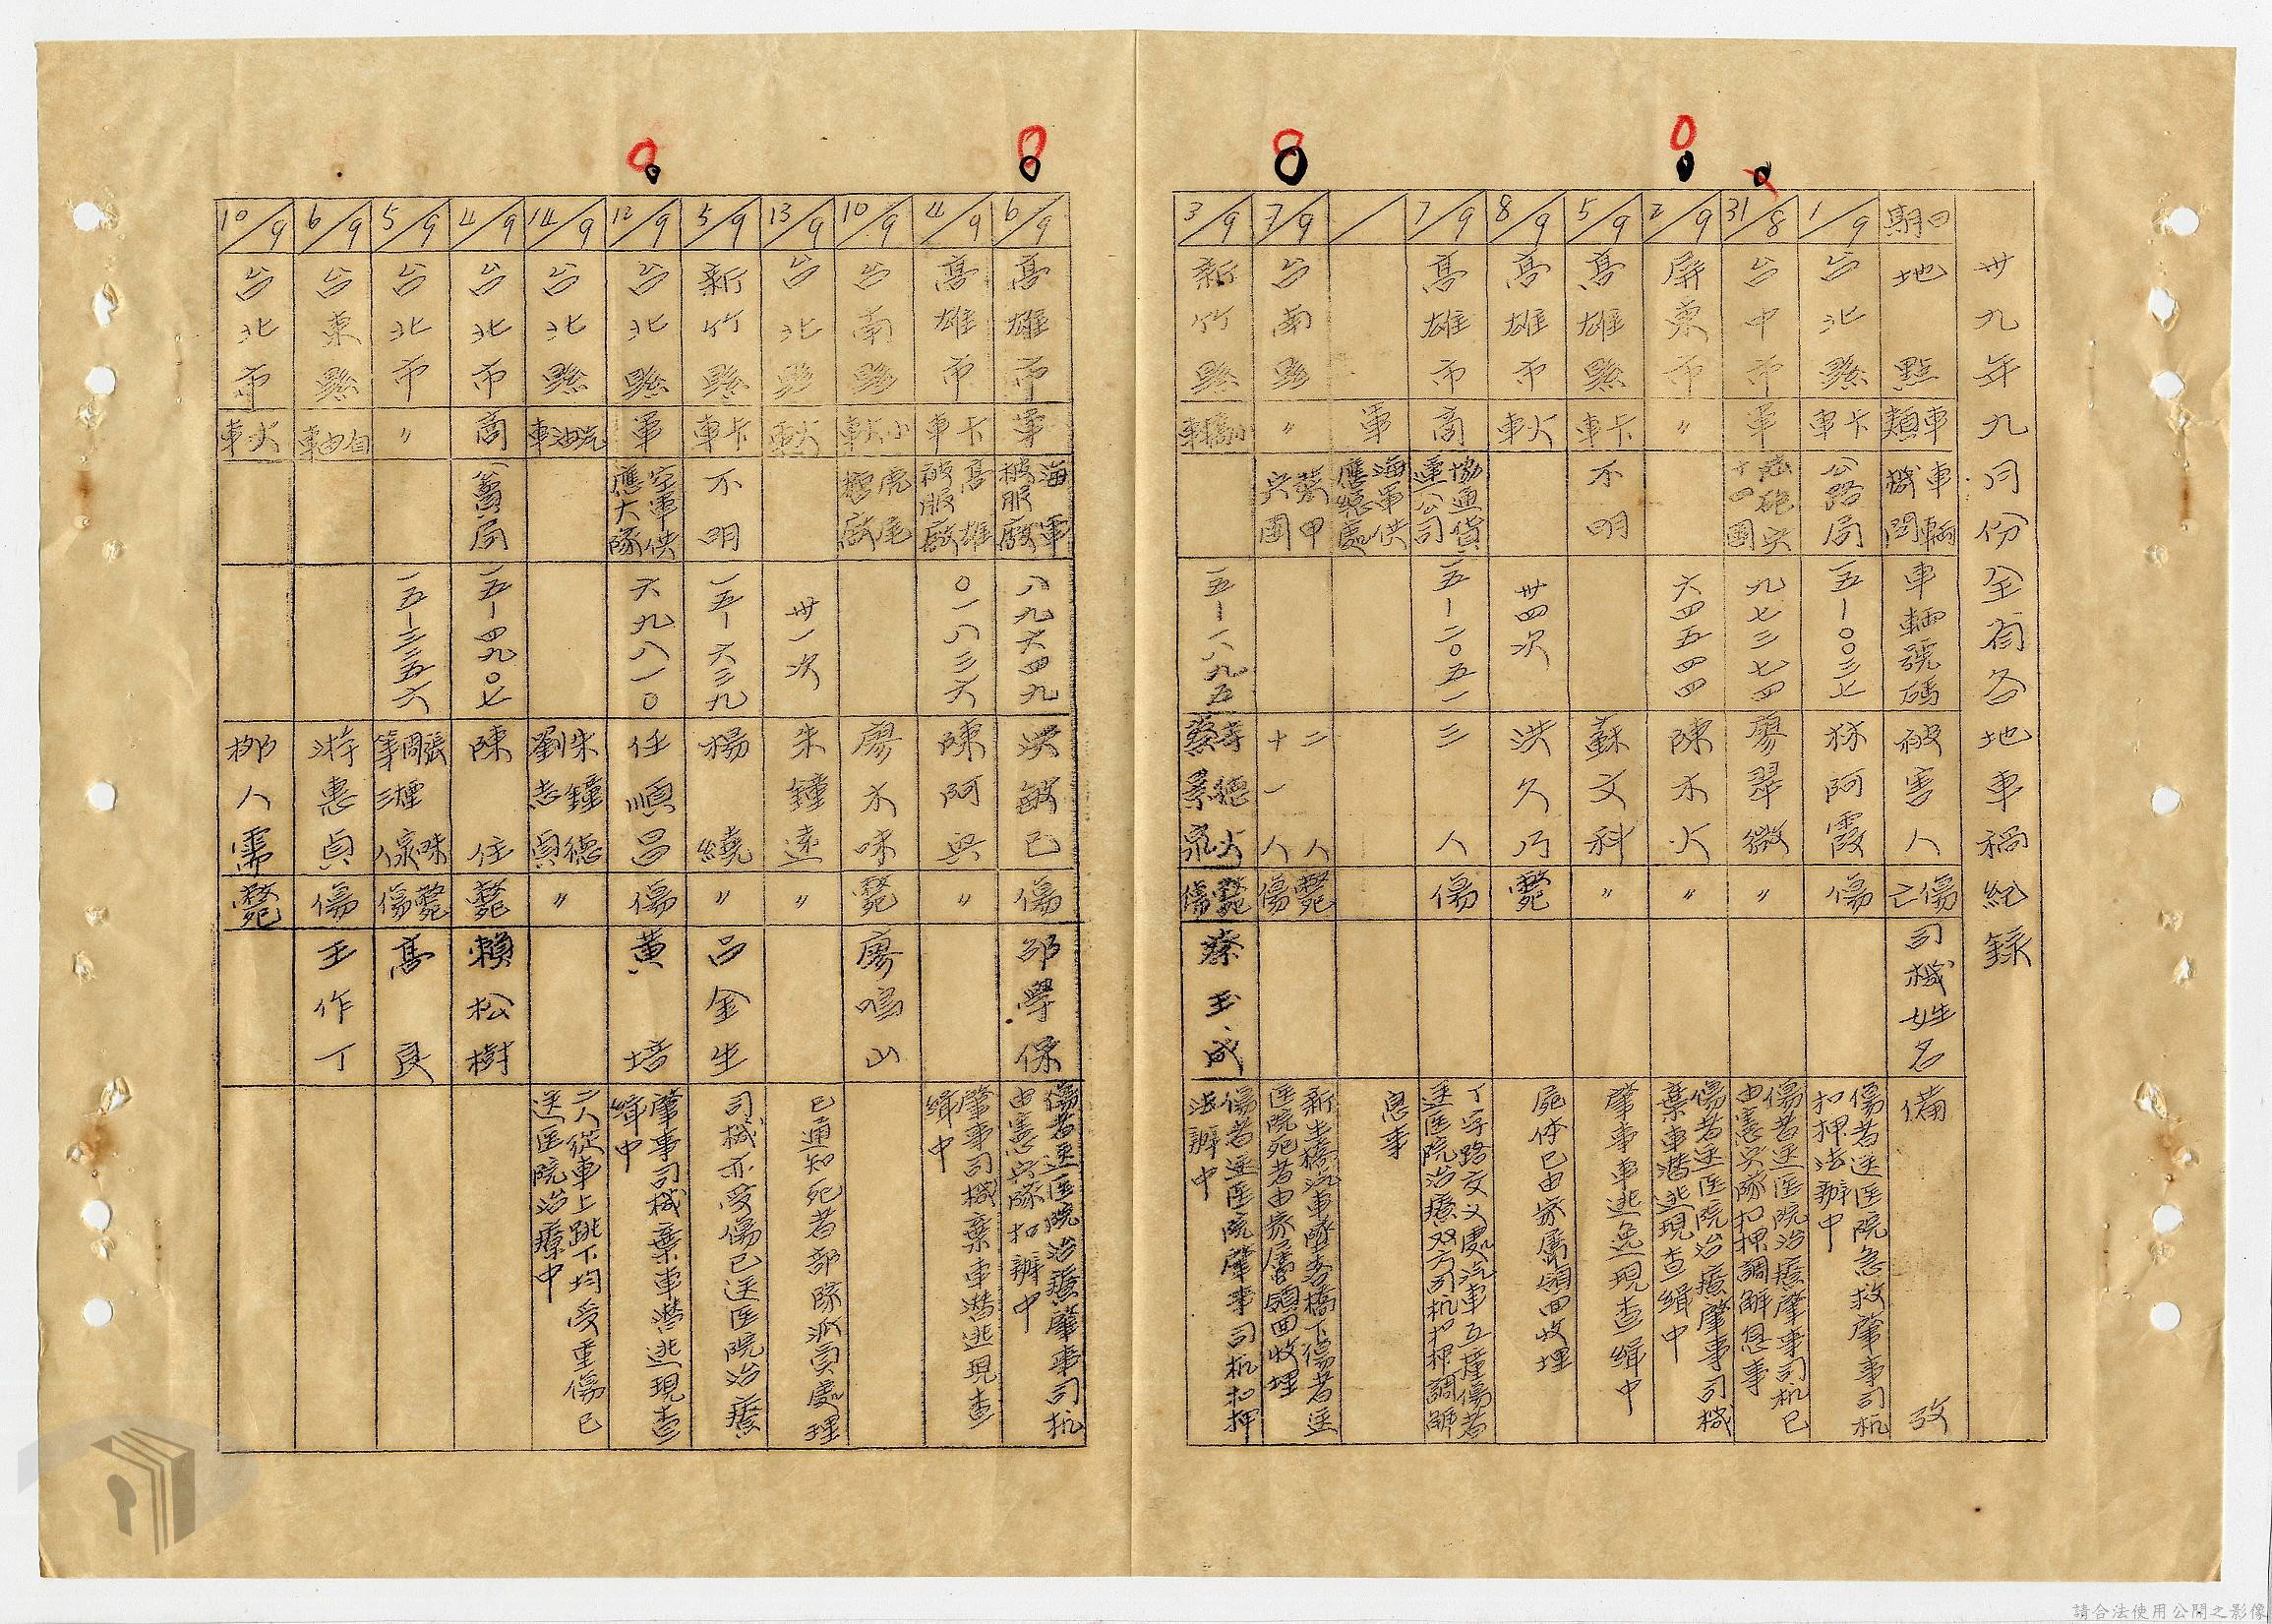 卅九年九月份全省各地車禍紀錄
日期 地點 車類 車輛機關 車輛號碼 被害人 傷亡 司機姓名 備攷
1/9 台北縣 卡車 公路局 一五-一〇〇三七 林阿霞 傷 傷者送医院急救肇事司机扣押法辦中
31/8 台中市 軍 砲兵十四團 九七三七四 廖翠微 〃 傷者送医院治療肇事司机已由憲兵隊扣押調解息事
2/9 屏東市 〃 六四五四四 陳木火 〃 傷者送医院治療肇事司機棄車潛逃現查緝中
5/9 高雄縣 卡車 不明 蘇文科 〃 肇事車逃逸現查緝中
8/9 高雄市 火車 卅四次 洪久巧 斃 屍体已由家屬領回收埋
7/9 高雄市 商 協通貨運公司 一五-二〇五一 三人 傷 丁字路交叉處汽車互撞傷者送医院治療双方司机扣押調解
軍 海軍供應總處 息事
7/9 台南縣 〃 裝甲兵團 二人十一人 斃傷 新生橋汽車墜落橋下傷者送医院死者由家屬領回收埋
3/9 新竹縣 一五-一八九五 德火 蔡景 斃傷 蔡玉成 傷者送医院肇事司机扣押法辦中
6/9 高雄市 軍 海軍被服廠 八九六四九 洪 已 傷 邵學保 傷者送医院治療肇事司机由憲兵隊扣辦中
4/9 高雄市 卡車 高雄被服廠 〇一八三六 陳阿興 〃 肇事司機棄車潛逃現查緝中
10/9 台南縣 小火車 虎尾糖廠 廖木味 斃 廖鳴山
13/9 台北縣 火車 卅一次 朱鐘遠 〃 已通知死者部隊派員處理
5/9 新竹縣 卡車 不明 一五-六三九 楊繞 〃 呂金生 司機亦受傷已送医院治療
12/9 台北縣 軍 空軍供應大隊 六九八一〇 任順昌 傷 黃培 肇事司機棄車潛逃現查緝中
14/9 台北縣 汽油車 朱鐘德 劉志貞 〃 二人從車上跳下均受重傷已送医院治療中
4/9 台北市 商 公賣局 一五-四九〇七 陳住 斃 賴松樹
5/9 台北市 〃 一五-三三五六 張味 等三人 斃傷 高良
6/9 台東縣 自由車 游惠貞 傷 王作丁
10/9 台北市 火車 柳人需 斃
請合法使用公開之影像